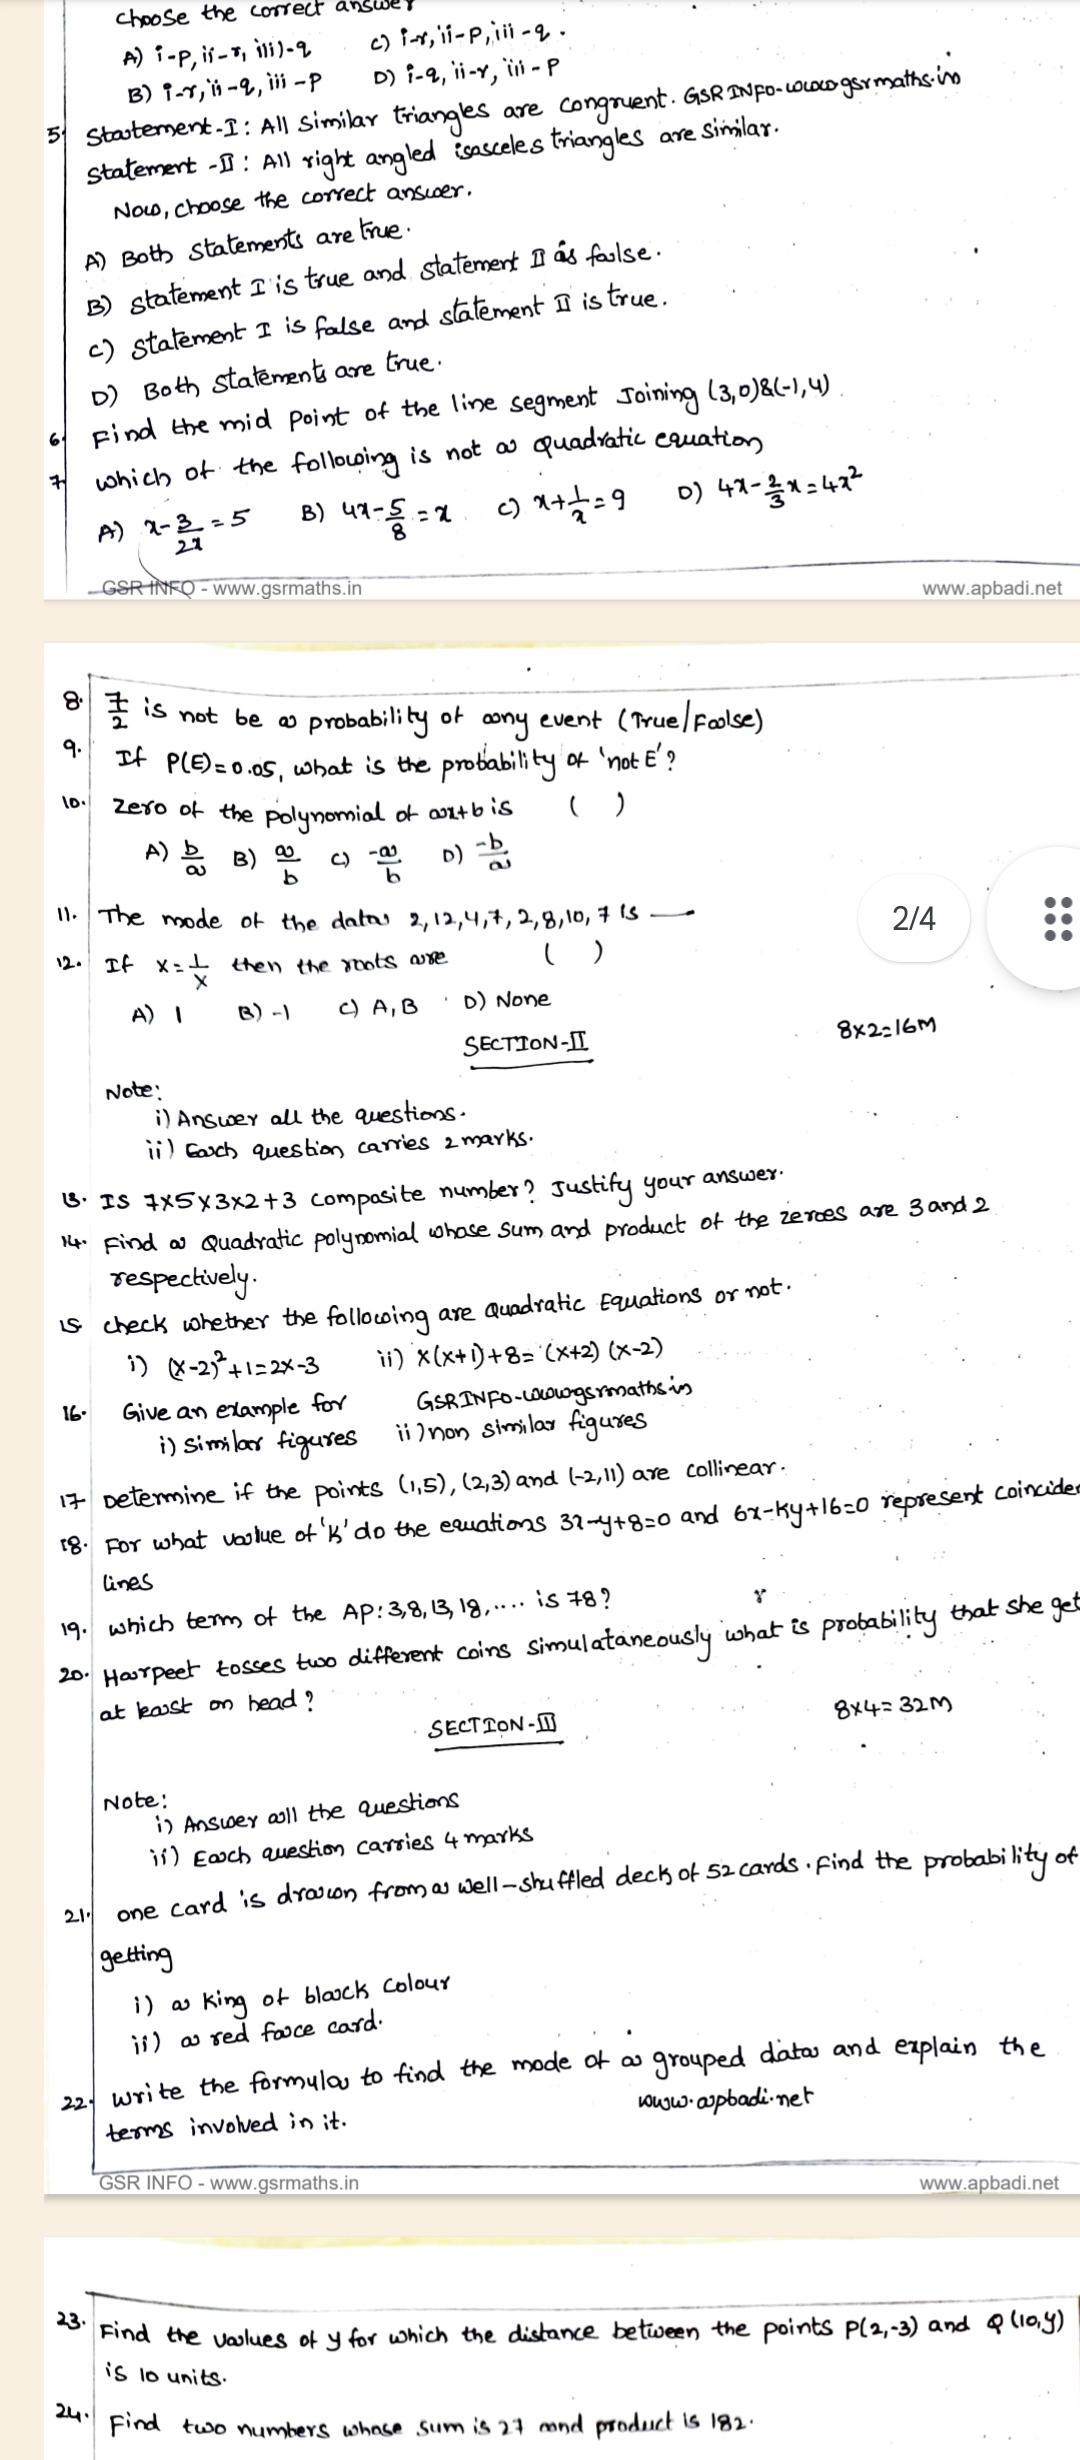 choose the correct answer
A) i-p, ii-r, iii)-q C) i-r, ii-p, iii-q.
B) i-r, ii-q, iii-p D) i-q, ii-r, iii-p
5) Statement-I: All Similar triangles are congruent. GSR INFO-www.gsrmaths.in
Statement-II: All right angled isasceles triangles are similar.
Now, choose the correct answer.
A) Both statements are true.
B) statement I is true and statement II is false.
C) statement I is false and statement II is true.
D) Both statements are true.
6) Find the mid point of the line segment Joining (3,0)&(-1,4)
7) which of the following is not a quadratic equation
A) x-3/2x=5 B) 4x-5/8=x C) x+1/x=9 D) 4x-2/3x=4x²
GSR INFO - www.gsrmaths.in www.apbadi.net
8. 7/2 is not be a probability of any event (True/False)
9. If P(E)=0.05, what is the probability of 'not E'?
10. zero of the polynomial of ax+b is ( )
A) b/a B) a/b C) -a/b D) -b/a
11. The mode of the data 2,12,4,7,2,8,10,7 is —
2/4
12. If x=1/x then the roots are ( )
A) 1 B) -1 C) A,B D) None
SECTION-II 8×2=16M
Note:
i) Answer all the questions.
ii) Each question carries 2 marks.
13. Is 7×5×3×2+3 composite number? Justify your answer.
14. Find a Quadratic polynomial whose sum and product of the zeroes are 3 and 2
respectively.
15 check whether the following are Quadratic Equations or not.
i) (x-2)²+1=2x-3 ii) x(x+1)+8=(x+2)(x-2)
16. Give an example for GSRINFO-www.gsrmaths.in
i) similar figures ii) non similar figures
17 Determine if the points (1,5), (2,3) and (-2,11) are collinear.
18. For what value of 'k' do the equations 3x-y+8=0 and 6x-ky+16=0 represent coinciden
lines
19. which term of the AP: 3,8,13,18,.... is 78?
20. Harpeet tosses two different coins simulataneously what is probability that she get
at least on head?
SECTION-III 8×4=32M
Note:
i) Answer all the questions
ii) Each question carries 4 marks
21. one card is drawn from a well-shuffled deck of 52 cards. Find the probability of
getting
i) a king of black colour
ii) a red face card.
22. write the formula to find the mode of a grouped data and explain the
terms involved in it. www.apbadi.net
GSR INFO - www.gsrmaths.in www.apbadi.net
23. Find the values of y for which the distance between the points P(2,-3) and Q(10,y)
is 10 units.
24. Find two numbers whose sum is 27 and product is 182.